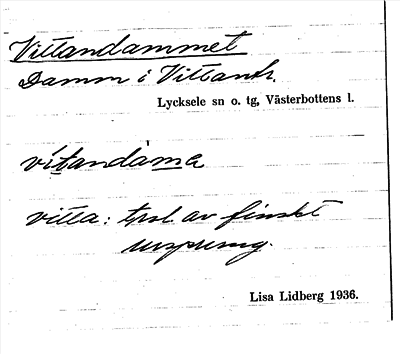 Vittandammet
Damm i Vittanb.
Lycksele sn o. tg, Västerbottens l.
vitandamɐ
vitta: trol. av finskt
ursprung.
Lisa Lidberg 1936.